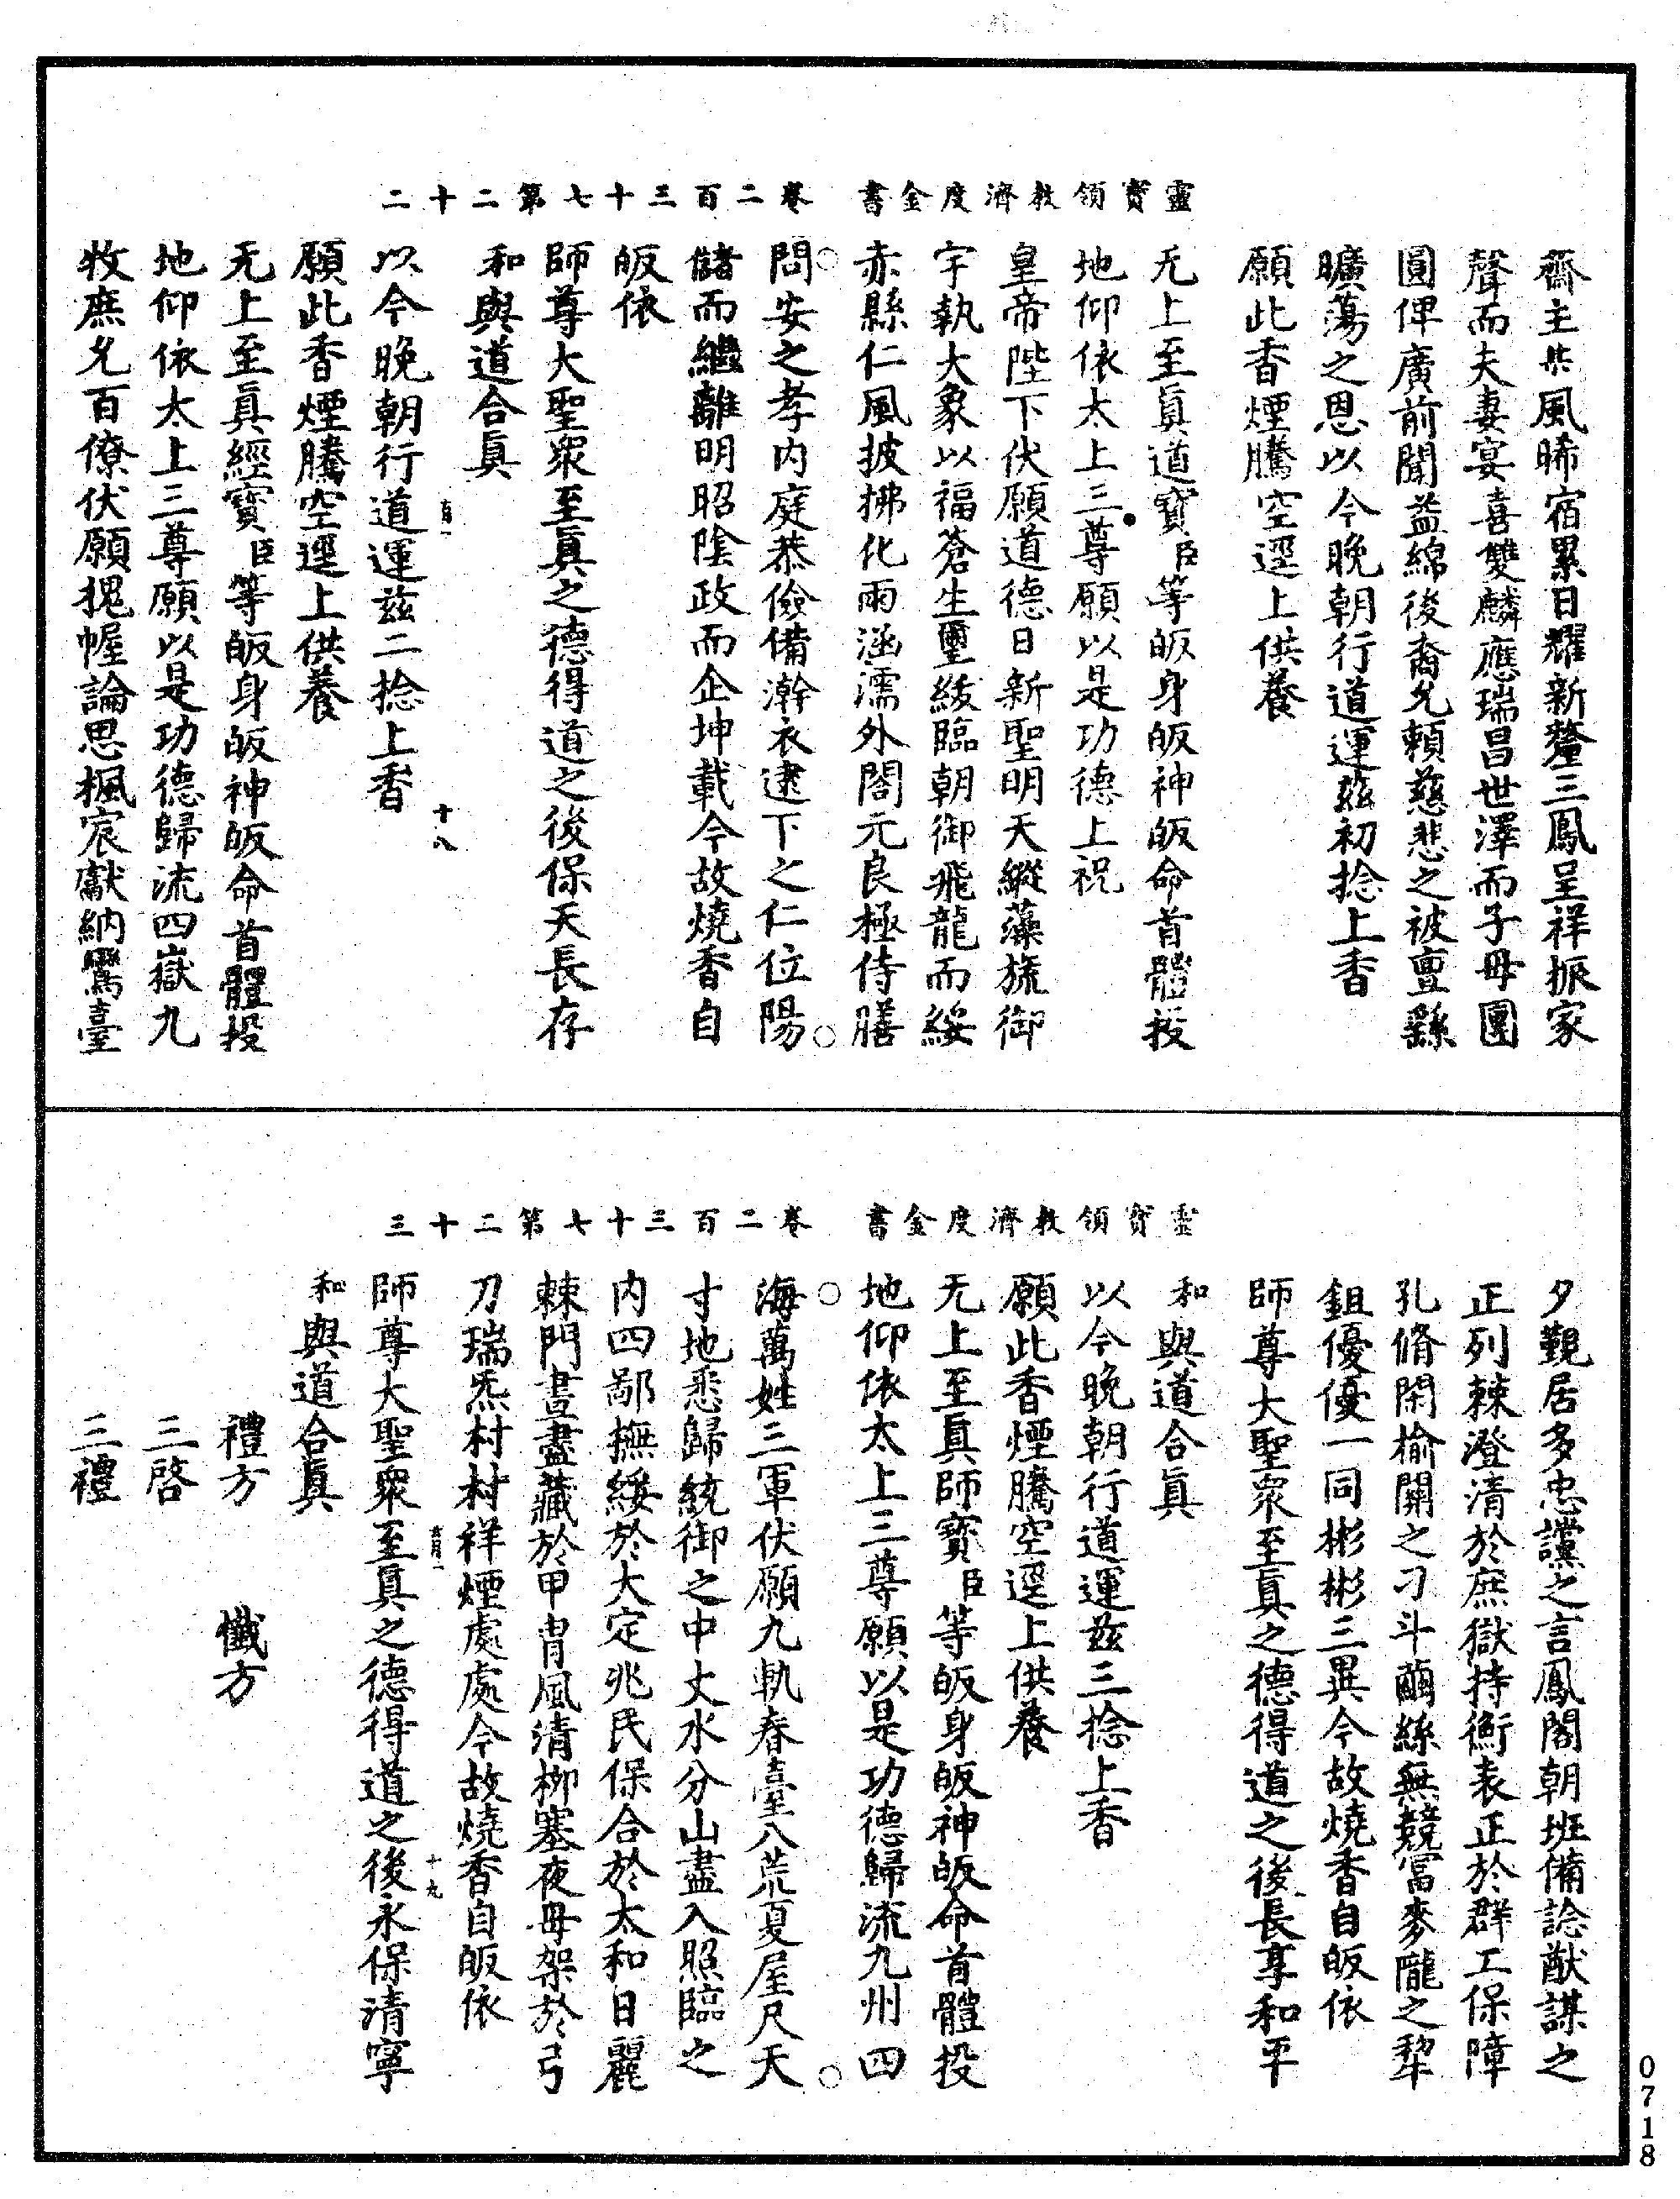 靈寶領教濟度金書　卷二百三十七第二十二
齋主共風晞宿累日耀新釐三鳳呈祥振家
聲而夫妻宴喜雙麟應瑞昌世澤而子毋團
圓俾廣前聞益綿後裔允賴慈悲之被亶繇
曠蕩之恩以今晚朝行道運兹初捻上香
願此香煙騰空逕上供養
无上至真道寶臣等皈身皈神皈命首體投
地仰依太上三尊願以是功德上祝
皇帝陛下伏願道德日新聖明天縱藻旒御
宇執大象以福蒼生璽紱臨朝御飛龍而綏
赤縣仁風披拂化雨涵濡外閤元良極侍膳
問安之孝内庭恭儉備澣衣逮下之仁位陽
儲而繼離明昭陰政而企坤載今故燒香自
皈依
師尊大聖衆至真之德得道之後保天長存
和與道合真
以今晚朝行道運兹二捻上香
十八
願此香煙騰空逕上供養
无上至真經寶臣等皈身皈神皈命首體投
地仰依太上三尊願以是功德歸流四嶽九
牧庶尹百僚伏願槐幄論思楓宸獻納鸞臺
靈寶領教濟度金書　卷二百三十七第二十三
夕覲居多忠讜之言鳳閣朝班備諗猷謀之
正列棘澄清於庶獄持衡表正於群工保障
孔脩閑榆關之刁斗繭絲無競富麥隴之犂
鉏優優一同彬彬三異今故燒香自皈依
師尊大聖衆至真之德得道之後長享和平
和與道合真
以今晚朝行道運兹三捻上香
願此香煙騰空逕上供養
无上至真師寶臣等皈身皈神皈命首體投
地仰依太上三尊願以是功德歸流九州四
海萬姓三軍伏願九軌春臺八荒夏屋尺天
寸地悉歸統御之中丈水分山盡入照臨之
内四鄙撫綏於大定兆民保合於太和日麗
棘門晝盡藏於甲胄風清柳塞夜毋架於弓
刀瑞炁村村祥煙處處今故燒香自皈依
十九
師尊大聖衆至真之德得道之後永保清寧
和與道合真
禮方　懺方
三啓
三禮
0718